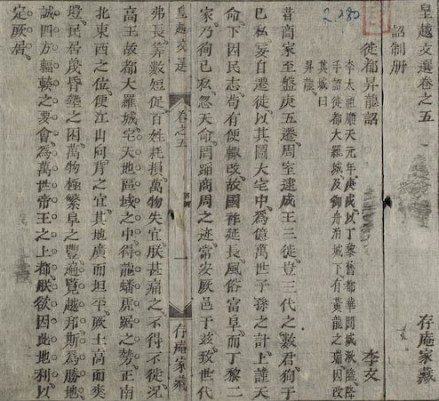 2780
皇越文選卷之五
存庵家藏
詔制册
徙都昇龍詔
李文
李太祖順天元年庚戌以丁黎舊都華閭城湫隘降
手詔徙都大羅城及御舟泊城下有黃龍之瑞因改
其城曰
昇龍
昔商家至盤庚五遷周室逮成王三徙豈三代之數君徇于
己私妄自遷徙以其圖大宅中為億萬世子孫之計上謹天
命下因民志苟有便輒改故國祚延長風俗富阜而丁黎二
家乃徇己私忽天命罔蹈商周之迹常安厥邑于茲致世代
皇越文選
卷之五
一
存庵家藏
弗長算數短促百姓耗損萬物失宜朕甚痛之不得不徙況
高王故都大羅城宅天地區域之中得龍蟠虎踞之勢正南
北東西之位便江山向背之宜其地廣而坦平厥土高而爽
塏民居蔑昏墊之困萬物極繁阜之豐遍覽越邦斯為勝地
誠四方輻輳之要會為萬世帝王之上都朕欲因此地利以
定厥居